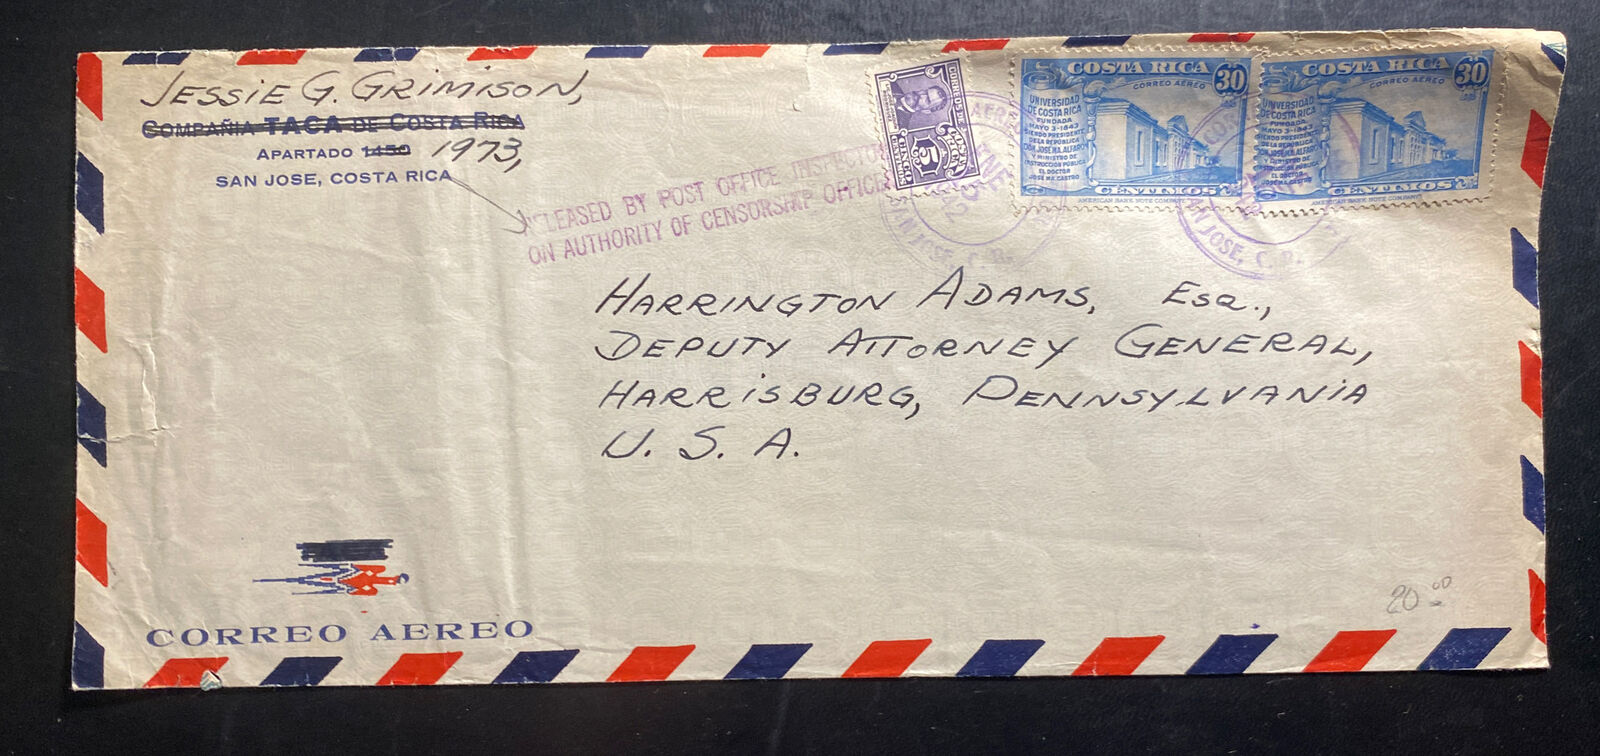 JESSIE G. GRIMISON,
COMPAÑIA TACA DE COSTA RICA
APARTADO 1450 1973,
SAN JOSE, COSTA RICA
RELEASED BY POST OFFICE INSPECTOR
ON AUTHORITY OF CENSORSHIP OFFICE
CORREOS DE
5
COSTA RICA 30
CORREO AEREO
UNIVERSIDAD
DE COSTA RICA
FUNDADA
MAYO 3-1843
SIENDO PRESIDENTE
DE LA REPÚBLICA
DON JOSE MA. ALFARO
Y MINISTRO DE
INSTRUCCIÓN PÚBLICA
EL DOCTOR
JOSE MA. CASTRO
CENTIMOS
AMERICAN BANK NOTE COMPANY
COSTA RICA 30
CORREO AEREO
UNIVERSIDAD
DE COSTA RICA
FUNDADA
MAYO 3-1843
SIENDO PRESIDENTE
DE LA REPÚBLICA
DON JOSE MA. ALFARO
Y MINISTRO DE
INSTRUCCIÓN PÚBLICA
EL DOCTOR
JOSE MA. CASTRO
CENTIMOS
AMERICAN BANK NOTE COMPANY
ENE
SAN JOSE, C.R.
SAN JOSE, C.R.
HARRINGTON ADAMS, ESQ.,
DEPUTY ATTORNEY GENERAL,
HARRISBURG, PENNSYLVANIA
U. S. A.
20.00
CORREO AEREO